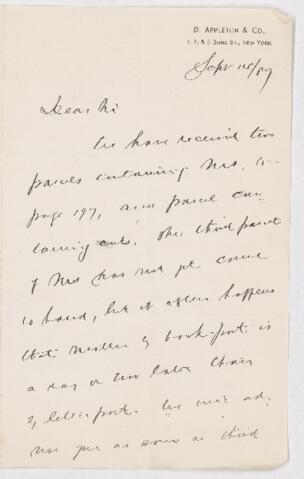 D. APPLETON & CO.,
1, 3, & 5 BOND ST., NEW YORK.
Sept 14/87
Dear Sir
We have received two
parcels containing Mss. to
page 197, and parcel con-
taining cuts. The third parcel
of Mss has not yet come
to hand, but it often happens
that matter by book-post is
a day or two later than
by letter post. We will ad-
vise you as soon as third